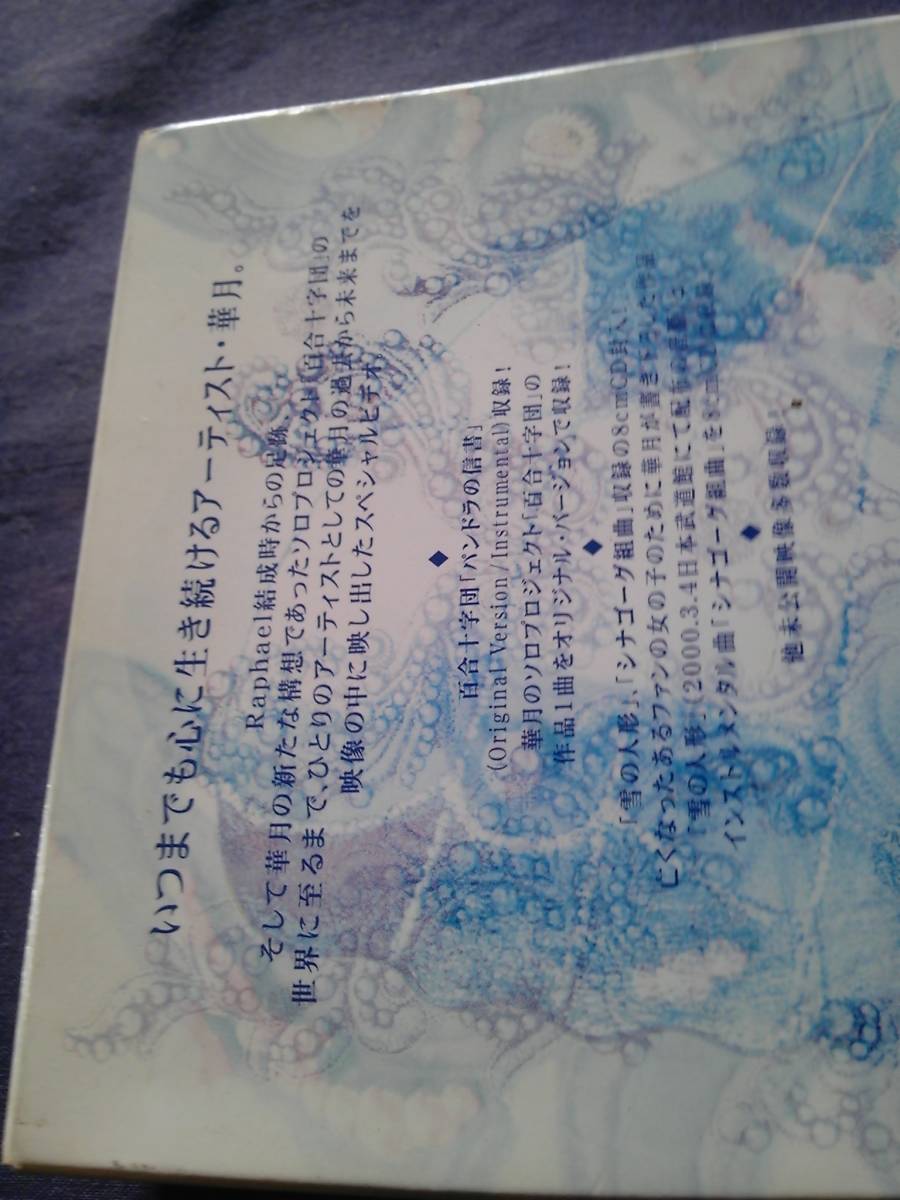 いつまでも心に生き続けるアーティスト・華月。
Raphael結成時からの足跡、
そして華月の新たな構想であったソロプロジェクト「百合十字団」の
世界に至るまで、ひとりのアーティストとしての華月の過去から未来までを
映像の中に映し出したスペシャルビデオ。
◆
百合十字団「パンドラの信書」
(Original Version/Instrumental)収録!
華月のソロプロジェクト「百合十字団」の
作品1曲をオリジナル・バージョンで収録!
◆
「雪の人形」、「シナゴーグ組曲」収録の8cmCD封入!
亡くなったあるファンの女の子のために華月が書き下ろした
「雪の人形」(2000.3.4日本武道館にて配布
インストルメンタル曲「シナゴーグ組曲」を8cm
◆
他未公開映像多数収録!